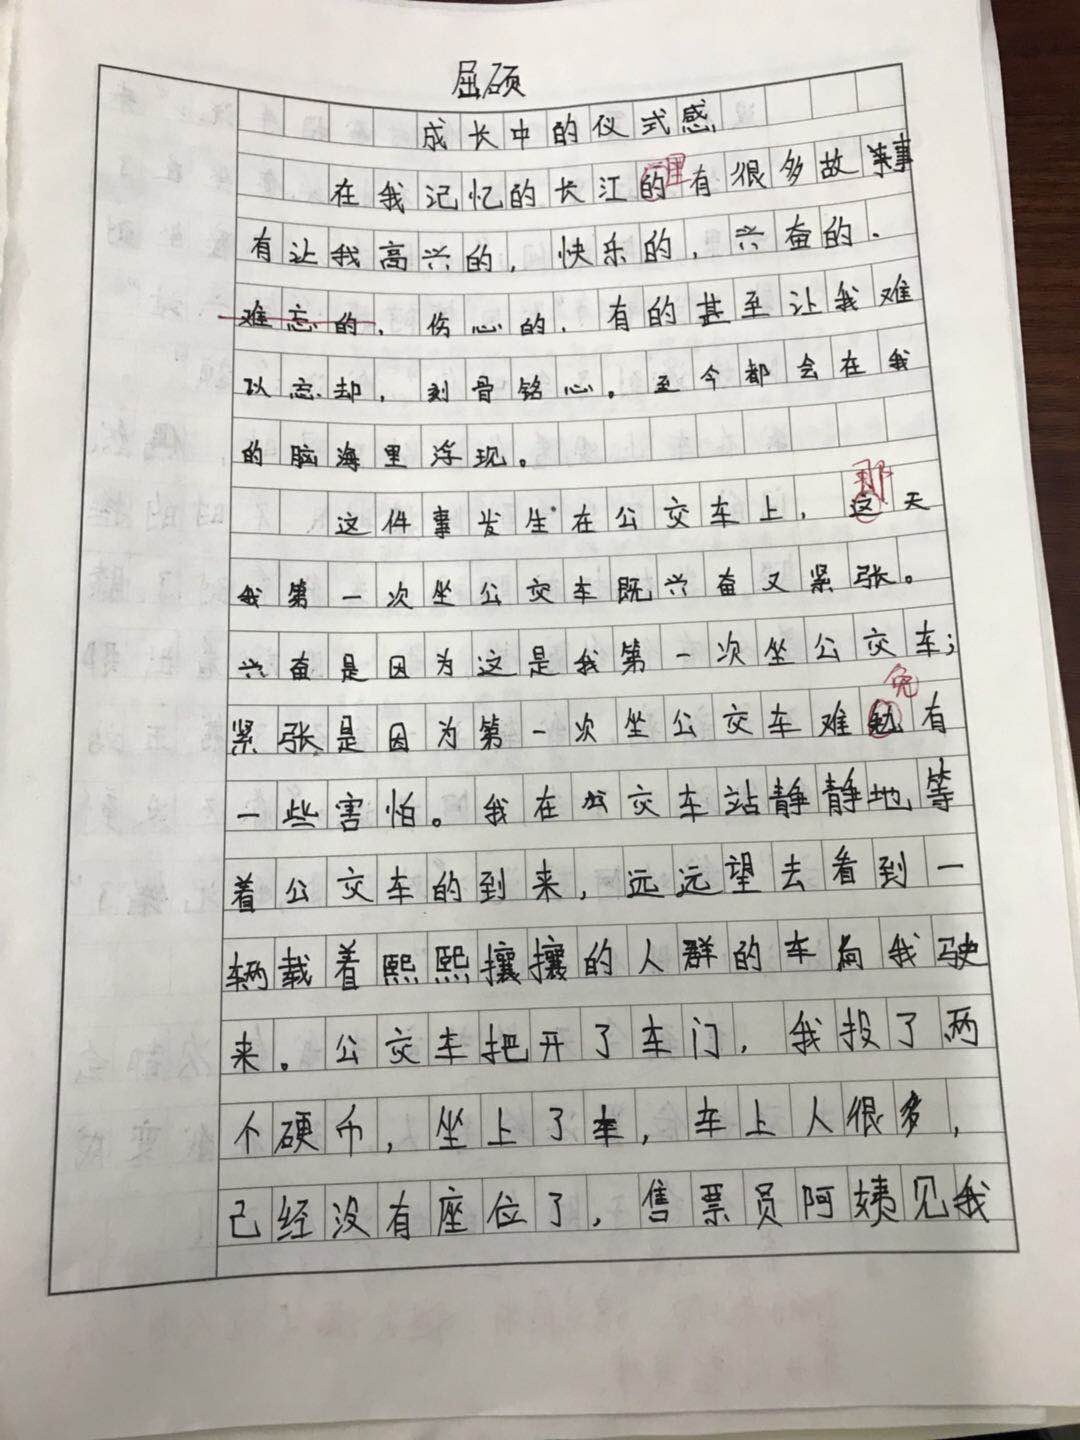 屈硕
成长中的仪式感
在我记忆的长江的里有很多故事
有让我高兴的，快乐的，兴奋的、
难忘的，伤心的，有的甚至让我难
以忘却，刻骨铭心。至今都会在我
的脑海里浮现。
这件事发生在公交车上，这那天
我第一次坐公交车既兴奋又紧张。
兴奋是因为这是我第一次坐公交车；
紧张是因为第一次坐公交车难勉免有
一些害怕。我在公交车站静静地等
着公交车的到来，远远望去看到一
辆载着熙熙攘攘的人群的车向我驶
来。公交车把开了车门，我投了两
个硬币，坐上了车，车上人很多，
已经没有座位了，售票员阿姨见我